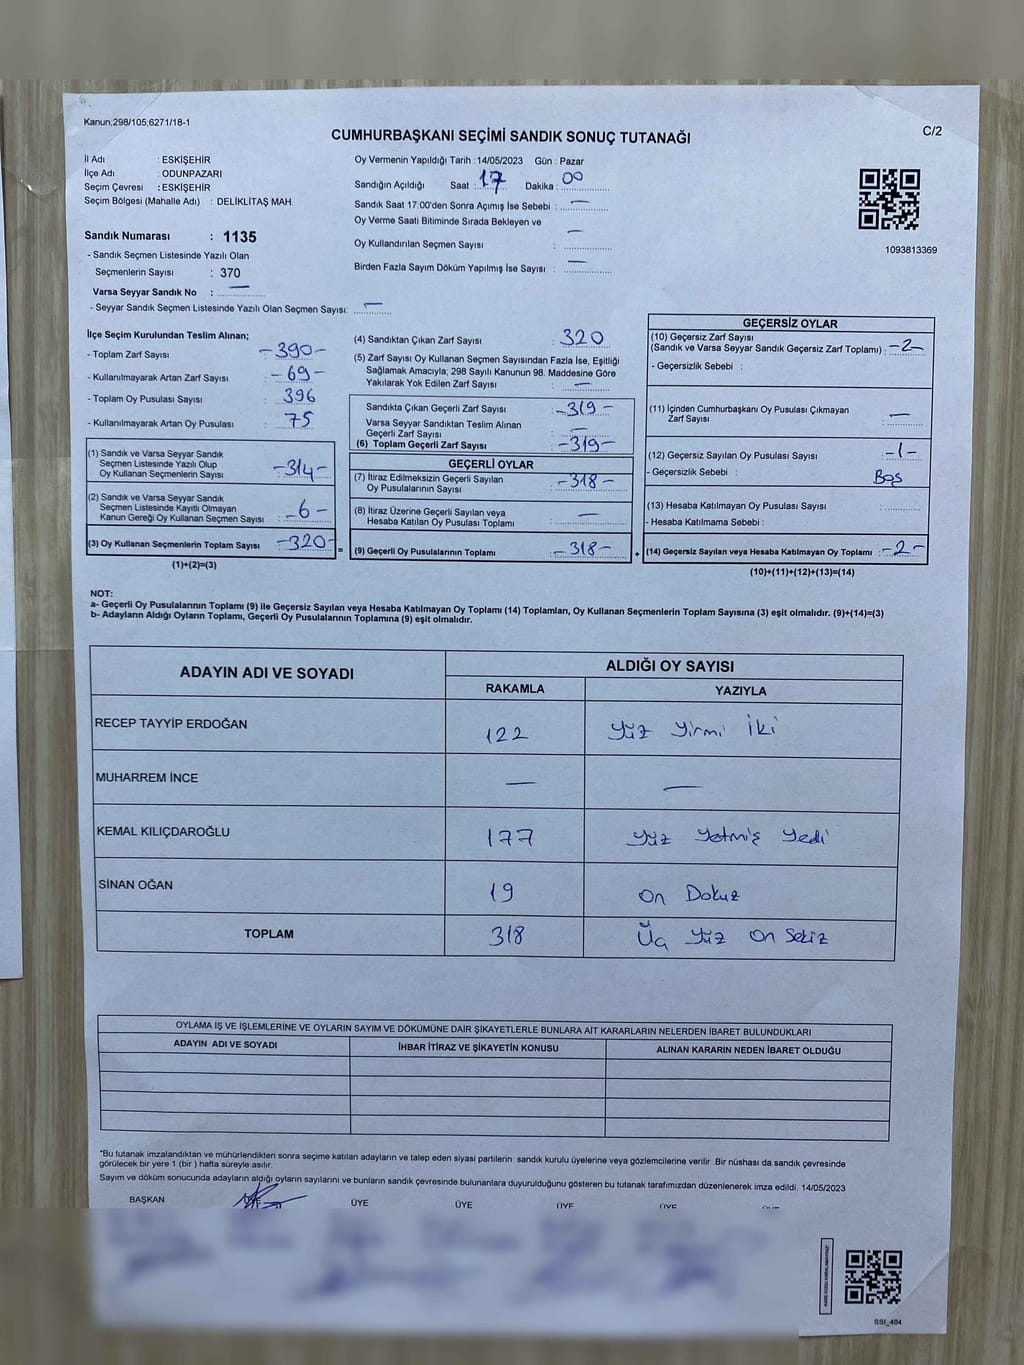 Kanun;298/105,6271/18-1
C/2
CUMHURBAŞKANI SEÇİMİ SANDIK SONUÇ TUTANAĞI
İl Adı : ESKİŞEHİR
İlçe Adı : ODUNPAZARI
Seçim Çevresi : ESKİŞEHİR
Seçim Bölgesi (Mahalle Adı) : DELİKLİTAŞ MAH.
Sandık Numarası : 1135
- Sandık Seçmen Listesinde Yazılı Olan
Seçmenlerin Sayısı : 370
Varsa Seyyar Sandık No : —
- Seyyar Sandık Seçmen Listesinde Yazılı Olan Seçmen Sayısı: —
Oy Vermenin Yapıldığı Tarih : 14/05/2023 Gün : Pazar
Sandığın Açıldığı Saat : 17 Dakika : 00
Sandık Saat 17:00'den Sonra Açımış İse Sebebi : —
Oy Verme Saati Bitiminde Sırada Bekleyen ve
Oy Kullandırılan Seçmen Sayısı : —
Birden Fazla Sayım Döküm Yapılmış İse Sayısı : —
1093813369
İlçe Seçim Kurulundan Teslim Alınan;
- Toplam Zarf Sayısı : -390-
- Kullanılmayarak Artan Zarf Sayısı : -69-
- Toplam Oy Pusulası Sayısı : 396
- Kullanılmayarak Artan Oy Pusulası : 75
(1) Sandık ve Varsa Seyyar Sandık
Seçmen Listesinde Yazılı Olup
Oy Kullanan Seçmenlerin Sayısı : -314-
(2) Sandık ve Varsa Seyyar Sandık
Seçmen Listesinde Kayıtlı Olmayan
Kanun Gereği Oy Kullanan Seçmen Sayısı : -6-
(3) Oy Kullanan Seçmenlerin Toplam Sayısı : -320-
(1)+(2)=(3)
(4) Sandıktan Çıkan Zarf Sayısı : 320
(5) Zarf Sayısı Oy Kullanan Seçmen Sayısından Fazla İse, Eşitliği
Sağlamak Amacıyla, 298 Sayılı Kanunun 98. Maddesine Göre
Yakılarak Yok Edilen Zarf Sayısı : —
Sandıkta Çıkan Geçerli Zarf Sayısı : -319-
Varsa Seyyar Sandıktan Teslim Alınan
Geçerli Zarf Sayısı : —
(6) Toplam Geçerli Zarf Sayısı : -319-
GEÇERLİ OYLAR
(7) İtiraz Edilmeksizin Geçerli Sayılan
Oy Pusulalarının Sayısı : -318-
(8) İtiraz Üzerine Geçerli Sayılan veya
Hesaba Katılan Oy Pusulası Toplamı : —
= (9) Geçerli Oy Pusulalarının Toplamı : -318-
GEÇERSİZ OYLAR
(10) Geçersiz Zarf Sayısı
(Sandık ve Varsa Seyyar Sandık Geçersiz Zarf Toplamı) : -2-
- Geçersizlik Sebebi :
(11) İçinden Cumhurbaşkanı Oy Pusulası Çıkmayan
Zarf Sayısı : —
(12) Geçersiz Sayılan Oy Pusulası Sayısı : -1-
- Geçersizlik Sebebi : Boş
(13) Hesaba Katılmayan Oy Pusulası Sayısı :
- Hesaba Katılmama Sebebi :
+ (14) Geçersiz Sayılan veya Hesaba Katılmayan Oy Toplamı : -2-
(10)+(11)+(12)+(13)=(14)
NOT:
a- Geçerli Oy Pusulalarının Toplamı (9) ile Geçersiz Sayılan veya Hesaba Katılmayan Oy Toplamı (14) Toplamları, Oy Kullanan Seçmenlerin Toplam Sayısına (3) eşit olmalıdır. (9)+(14)=(3)
b- Adayların Aldığı Oyların Toplamı, Geçerli Oy Pusulalarının Toplamına (9) eşit olmalıdır.
ADAYIN ADI VE SOYADI
ALDIĞI OY SAYISI
RAKAMLA YAZIYLA
RECEP TAYYİP ERDOĞAN 122 Yüz Yirmi İki
MUHARREM İNCE — —
KEMAL KILIÇDAROĞLU 177 Yüz Yetmiş Yedi
SİNAN OĞAN 19 On Dokuz
TOPLAM 318 Üç Yüz On Sekiz
OYLAMA İŞ VE İŞLEMLERİNE VE OYLARIN SAYIM VE DÖKÜMÜNE DAİR ŞİKAYETLERLE BUNLARA AİT KARARLARIN NELERDEN İBARET BULUNDUKLARI
ADAYIN ADI VE SOYADI İHBAR İTİRAZ VE ŞİKAYETİN KONUSU ALINAN KARARIN NEDEN İBARET OLDUĞU
*Bu tutanak imzalandıktan ve mühürlendikten sonra seçime katılan adayların ve talep eden siyasi partilerin sandık kurulu üyelerine veya gözlemcilerine verilir. Bir nüshası da sandık çevresinde
görülecek bir yere 1 (bir) hafta süreyle asılır.
Sayım ve döküm sonucunda adayların aldığı oyların sayılarını ve bunların sandık çevresinde bulunanlara duyurulduğunu gösteren bu tutanak tarafımızdan düzenlenerek imza edildi. 14/05/2023
BAŞKAN ÜYE ÜYE ÜYE ÜYE ÜYE
SSI_404